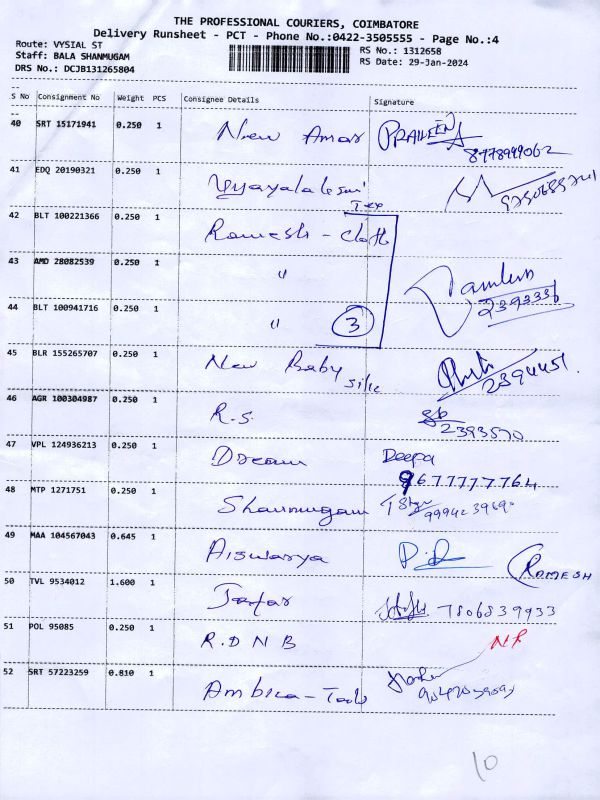 THE PROFESSIONAL COURIERS, COIMBATORE
Delivery Runsheet - PCT - Phone No.:0422-3505555 - Page No.:4
Route: VYSIAL ST
Staff: BALA SHANMUGAM
DRS No.: DCJB131265804
RS No.: 1312658
RS Date: 29-Jan-2024
S No Consignment No Weight PCS Consignee Details Signature
40 SRT 15171941 0.250 1 New Amar PRAVEEN
41 EDQ 20190321 0.250 1 Tex
42 BLT 100221366 0.250 1 Ramesh - cloth
43 AMD 28082539 0.250 1 "
44 BLT 100941716 0.250 1 " 3 2393336
45 BLR 155265707 0.250 1 New Baby silk 2394451.
46 AGR 100304987 0.250 1 R.S. 2393570
47 VPL 124936213 0.250 1 Dream Deepa 9677777764
48 MTP 1271751 0.250 1 Shanmugam
49 MAA 104567043 0.645 1 Aiswarya RAMESH
50 TVL 9534012 1.600 1 Jafar 7806839933
51 POL 95085 0.250 1 R.D N B NR
52 SRT 57223259 0.810 1 Ambica - Tools
10